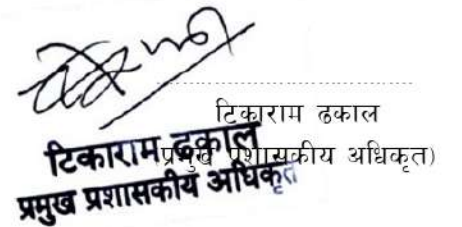 टिकाराम ढकाल
(प्रमुख प्रशासकीय अधिकृत)
टिकाराम ढकाल
प्रमुख प्रशासकीय अधिकृत